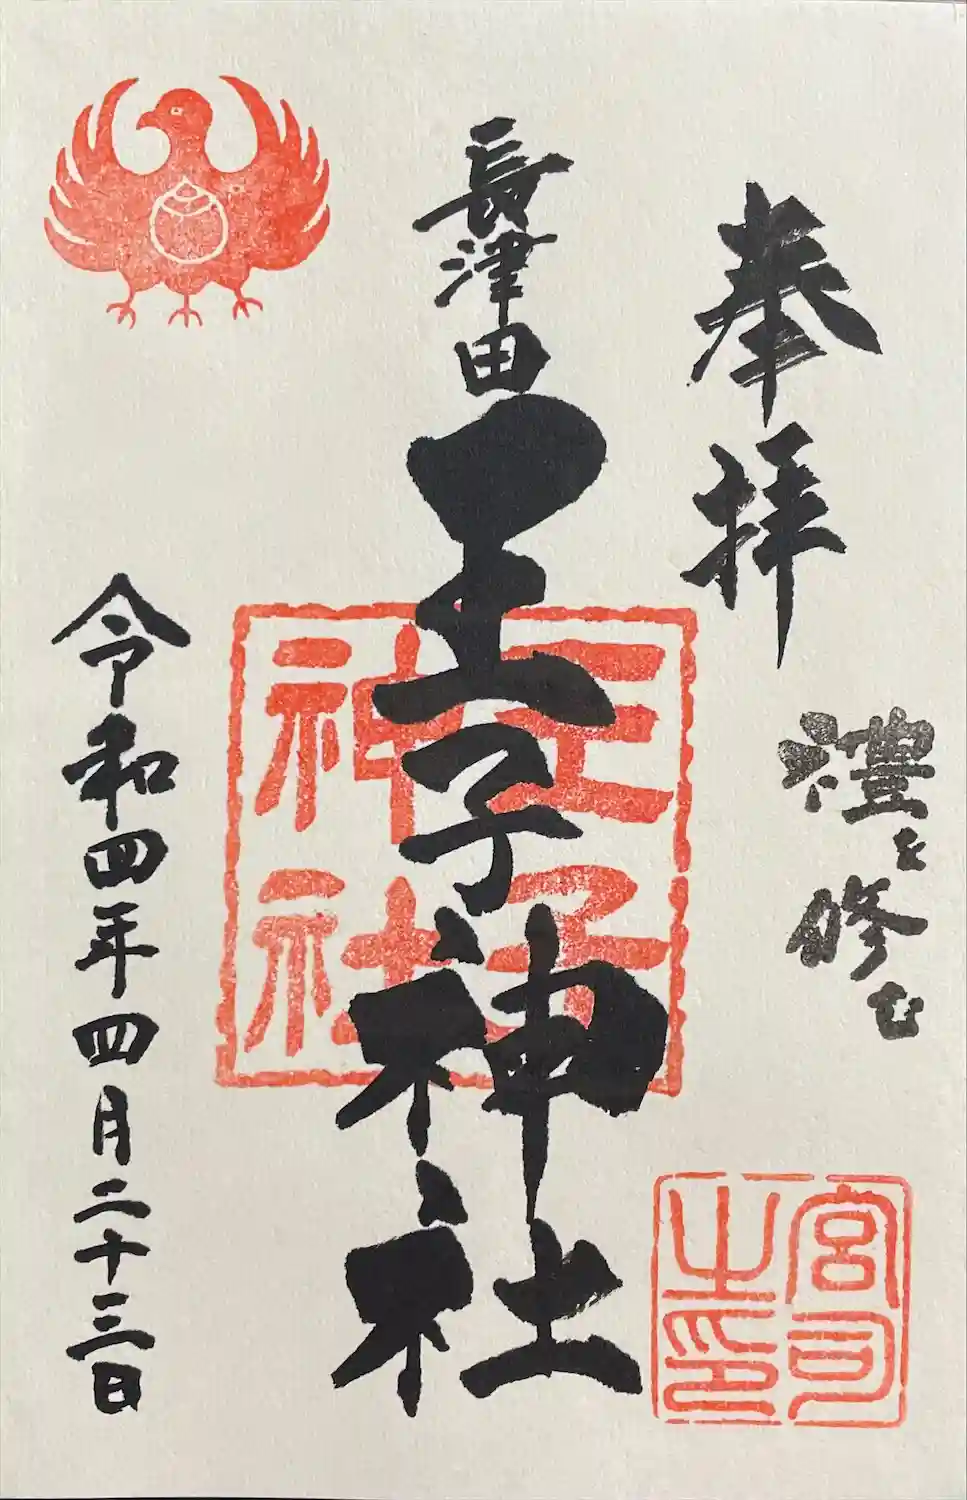 奉拝
禮を修む
宮司之印
長津田
王子神社
王子神社
令和四年四月二十三日